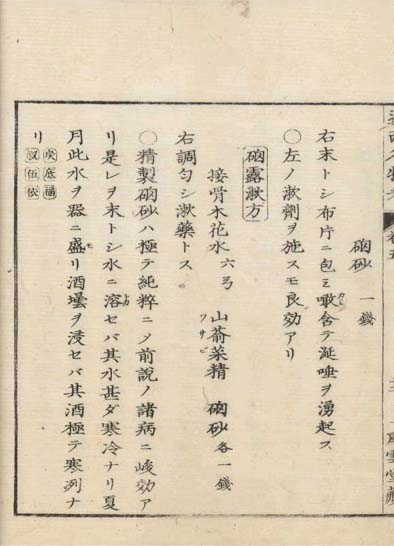 磠砂 一錢
右末トシ布片ニ包ミ噉含テ涎唾ヲ湧起ス
〇左ノ漱劑ヲ施スモ良効アリ
磠露漱方
接骨木花水 六弓 山葵菜精 磠砂 各一錢
右調匀シ漱藥トス
〇精製磠砂ハ極テ純粹ニメ前説ノ諸病ニ峻効ア
リ是レヲ末トシ水ニ溶セバ其水甚ダ寒冷ナリ夏
月此水ヲ器ニ盛リ酒壜ヲ浸セバ其酒極テ寒列ナ
リ